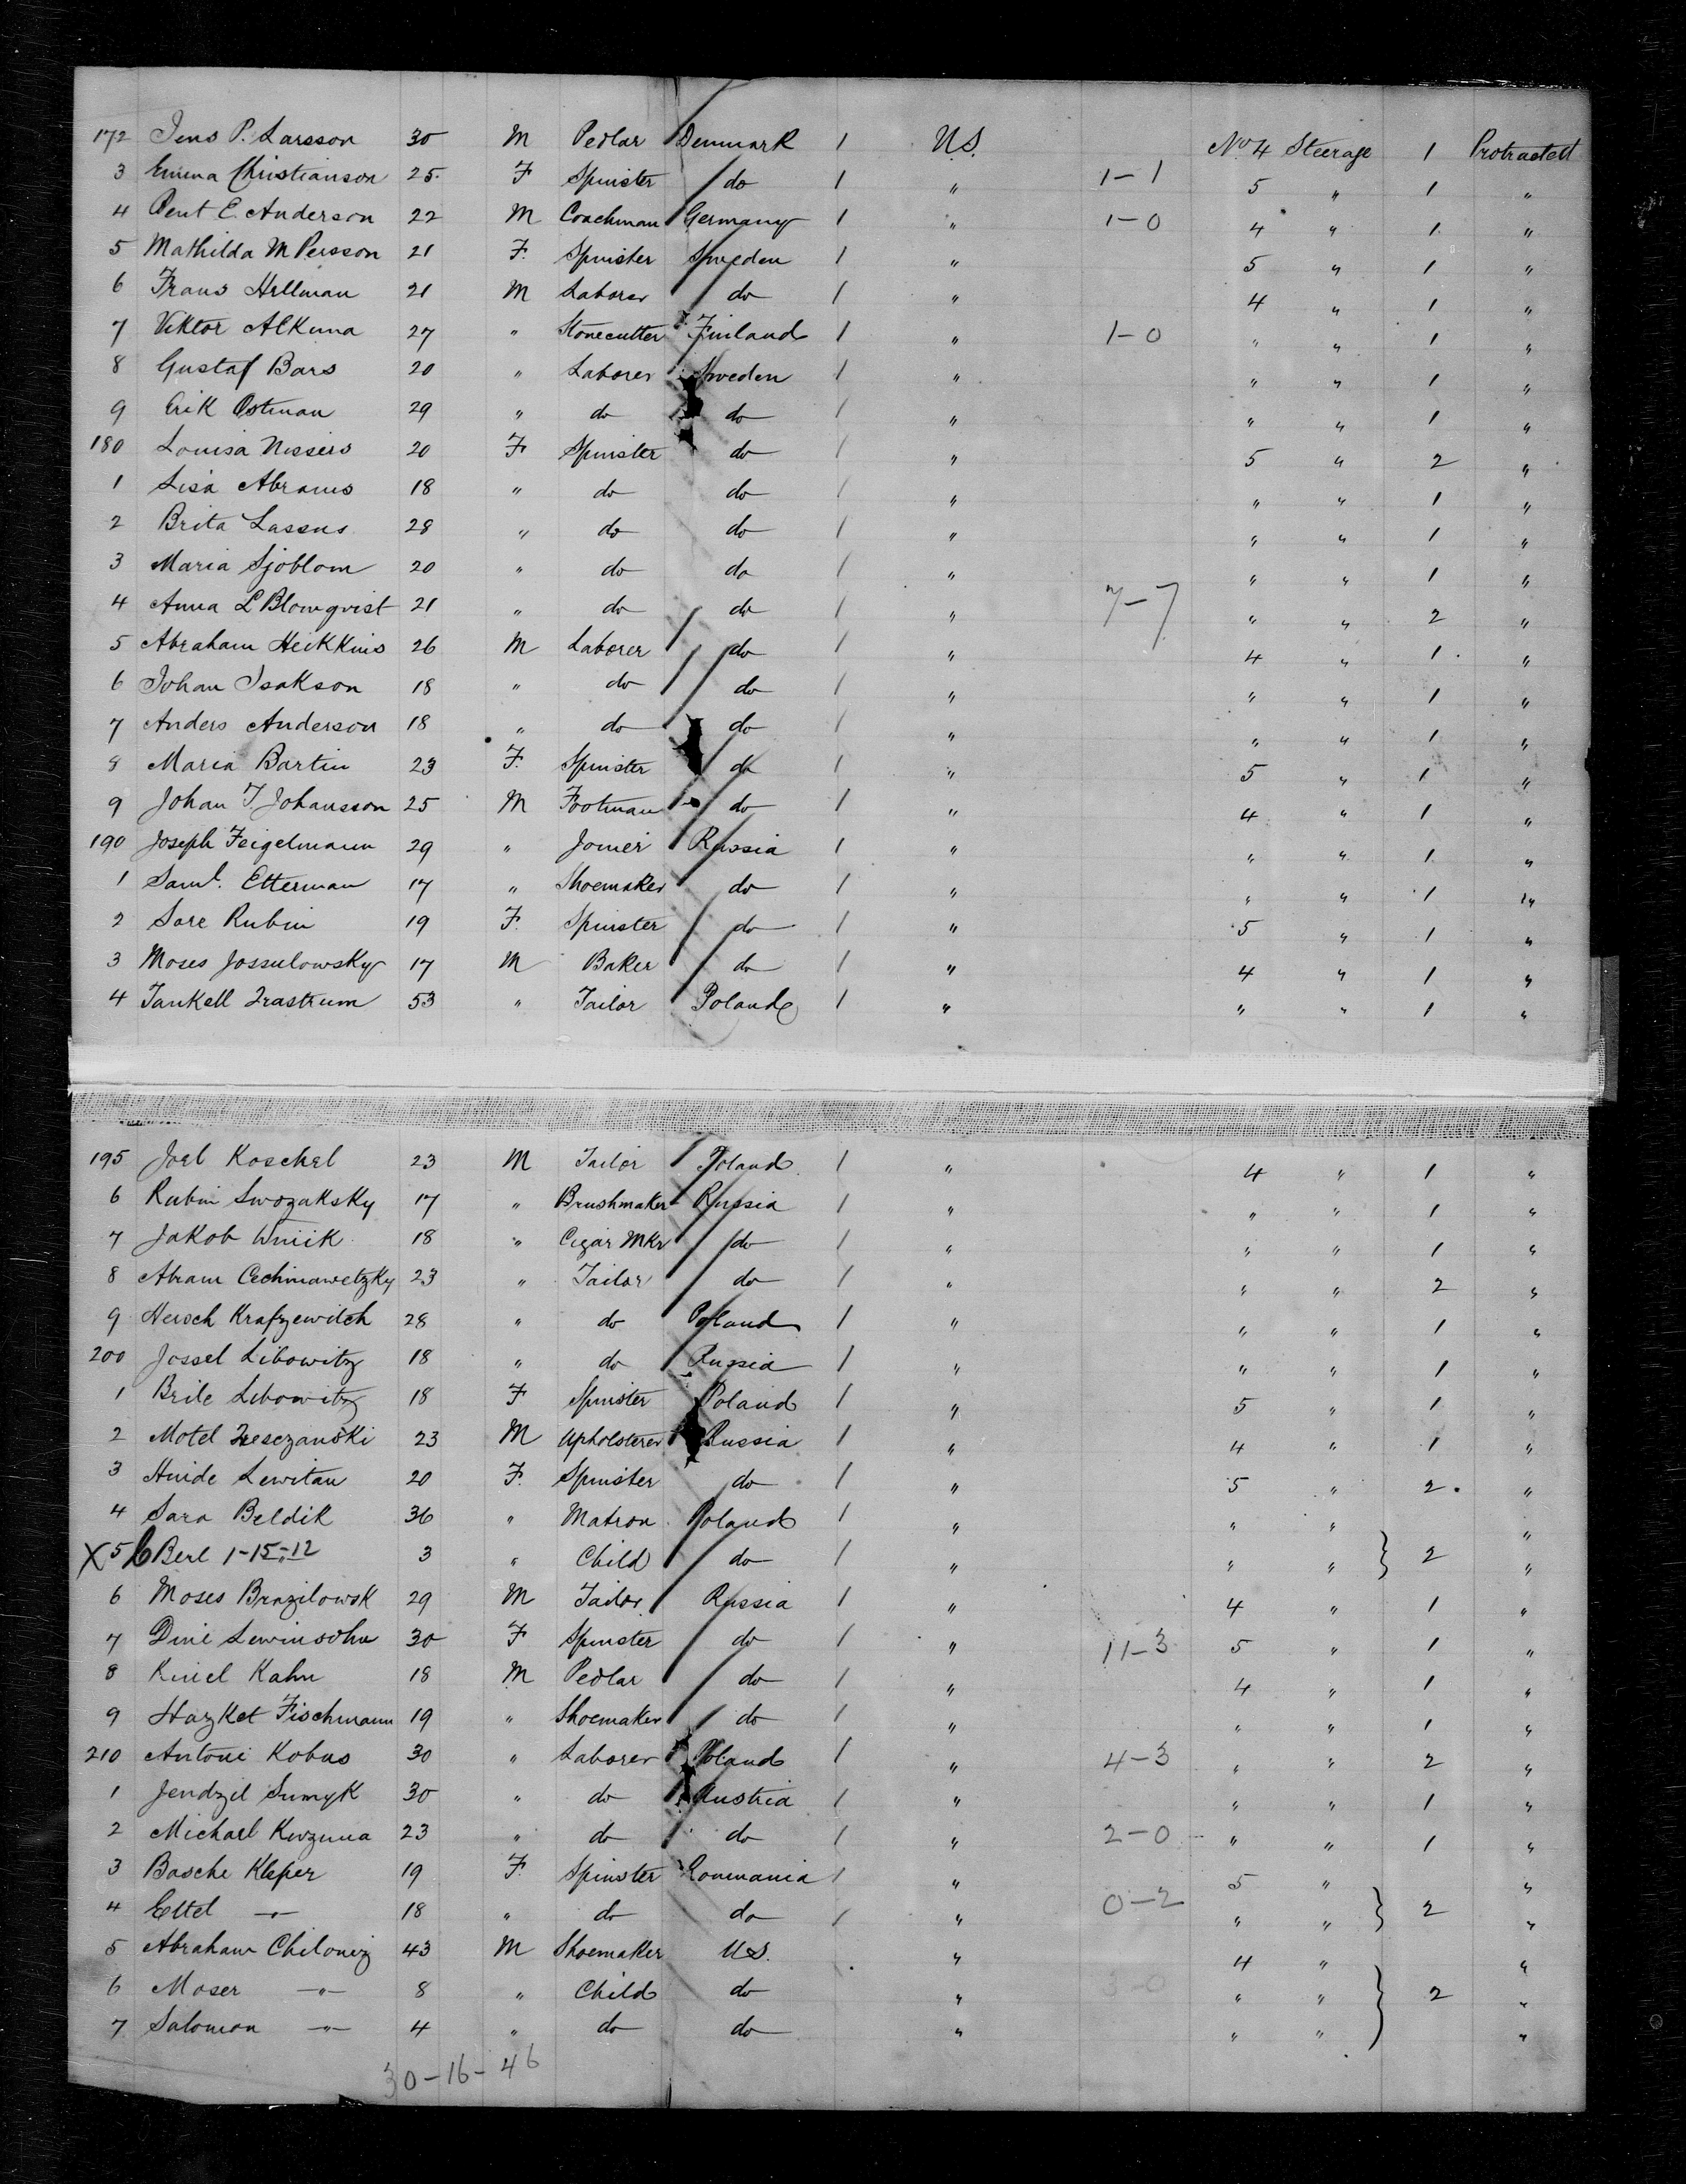 172 Jens P. Larsson 30 M Pedlar Denmark 1 U.S. No 4 Steerage 1 Protracted
3 Emma Christianson 25 F Spinster do 1 " 1-1 5 " 1 "
4 Pent E. Anderson 22 M Coachman Germany 1 " 1-0 4 " 1 "
5 Mathilda M Persson 21 F. Spinster Sweden 1 " 5 " 1 "
6 Frans Hellman 21 M Laborer do 1 " 4 " 1 "
7 Viktor Alkuna 27 " Stonecutter Finland 1 " 1-0 " " 1 "
8 Gustaf Bars 20 " Laborer Sweden 1 " " " 1 "
9 Erik Ostman 29 " do do 1 " " " 1 "
180 Louisa Nissers 20 F Spinster do 1 " 5 " 2 "
1 Lisa Abrams 18 " do do 1 " " " 1 "
2 Brita Lassus 28 " do do 1 " " " 1 "
3 Maria Sjoblom 20 " do do 1 " " " 1 "
4 Anna L Blomqvist 21 " do do 1 " 7-7 " " 2 "
5 Abraham Heikkins 26 M Laborer do 1 " 4 " 1 "
6 Johan Isakson 18 " do do 1 " " " 1 "
7 Anders Anderson 18 " do do 1 " " " 1 "
8 Maria Bartin 23 F. Spinster do 1 " 5 " 1 "
9 Johan J. Johansson 25 M Footman do 1 " 4 " 1 "
190 Joseph Feigelmann 29 " Joiner Russia 1 " " " 1 "
1 Saml. Etterman 17 " Shoemaker do 1 " " " 1 "
2 Sore Rubin 19 F. Spinster do 1 " 5 " 1 "
3 Moses Jossulowsky 17 M Baker do 1 " 4 " 1 "
4 Jankell Trastrum 53 " Tailor Poland 1 " " " 1 "
195 Joel Koschel 23 M Tailor Poland 1 " 4 " 1 "
6 Rubin Swozaksky 17 " Brushmaker Russia 1 " " " 1 "
7 Jakob Wniik 18 " Cigar Mkr do 1 " " " 1 "
8 Abram Cechinawetzky 23 " Tailor do 1 " " " 2 "
9 Hersch Krafzewitch 28 " do Poland 1 " " " 1 "
200 Jossel Libowitz 18 " do Russia 1 " " " 1 "
1 Brile Libowitz 18 F Spinster Poland 1 " 5 " 1 "
2 Motel Tresczanski 23 M Upholsterer Russia 1 " 4 " 1 "
3 Hinde Lewitan 20 F. Spinster do 1 " 5 " 2 "
4 Sara Beldik 36 " Matron Poland 1 " " " "
X 5 Berl 1-15-12 3 " Child do 1 " " " } 2 "
6 Moses Brazilowsk 29 M Tailor Russia 1 " 4 " 1 "
7 Dine Lewinsohn 30 F Spinster do 1 " 11-3 5 " 1 "
8 Kinel Kahn 18 M Pedlar do 1 " 4 " 1 "
9 Hazket Fischmann 19 " Shoemaker do 1 " " " 1 "
210 Antoni Kobus 30 " Laborer Poland 1 " 4-3 " " 2 "
1 Jendzil Sumyk 30 " do Austria 1 " " " 1 "
2 Michael Kuzma 23 " do do 1 " 2-0 " " 1 "
3 Basche Kleper 19 F. Spinster Roumania 1 " 5 " "
4 Ettel -"- 18 " do do 1 " 0-2 " " } 2 "
5 Abraham Chiloniz 43 M Shoemaker U.S. " 4 " "
6 Moser -"- 8 " Child do " 3-0 " " } 2 "
7 Salomon -"- 4 " do do " " " "
30-16-46